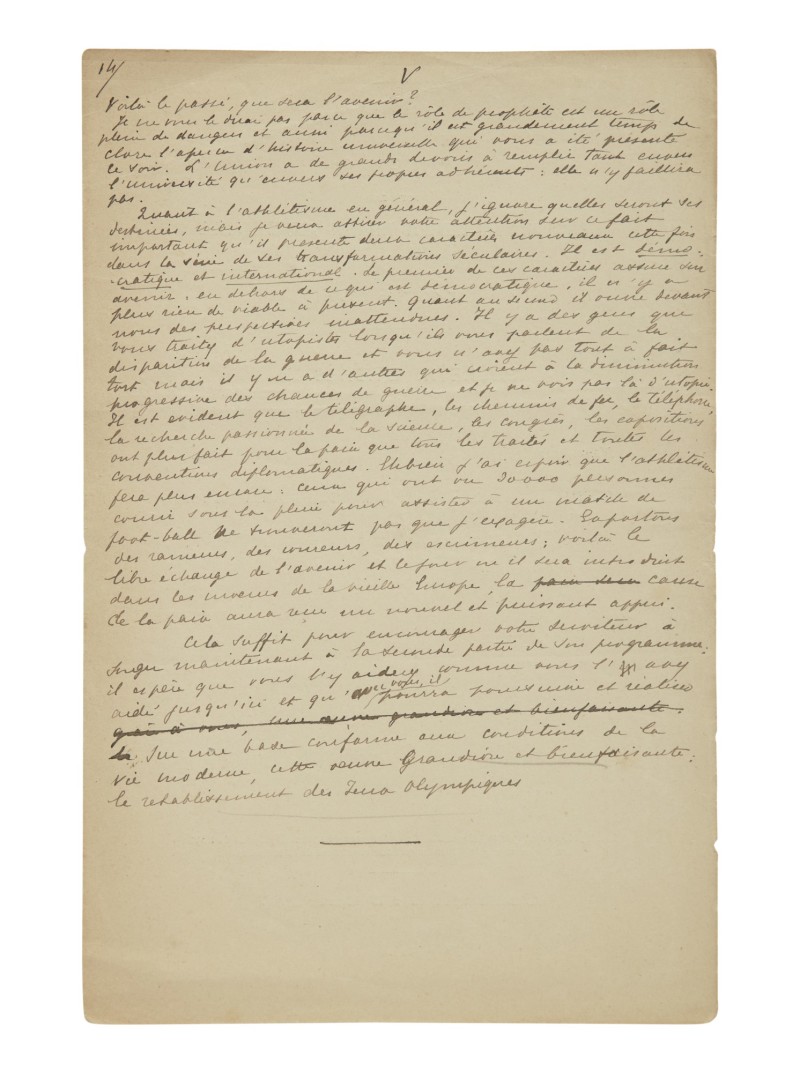 14/
V
Voilà le passé, que sera l'avenir?
Je ne vous le dirai pas parce que le rôle de prophète est un rôle
plein de dangers et aussi parcequ'il est grandement temps de
clore l'aperçu d'histoire universelle qui vous a été présenté
ce soir. L'Union a de grands devoirs à remplir tant envers
l'université qu'envers ses propres adhérents: elle n'y faillira
pas.
Quant à l'athlétisme en général, j'ignore quelles seront ses
destinées, mais je veux attirer votre attention sur ce fait
important qu'il présente deux caractères nouveaux cette fois
dans la série de ses transformations séculaires. Il est démo-
cratique et international. Le premier de ces caractères assure son
avenir: en dehors de ce qui est démocratique, il n'y a
plus rien de viable à présent. Quant au second il ouvre devant
nous des perspectives inattendues. Il y a des gens que
vous traitez d'utopistes lorsqu'ils vous parlent de la
disparition de la guerre et vous n'avez pas tout à fait
tort mais il y en a d'autres qui croient à la diminution
progressive des chances de guerre et je ne vois pas là d'utopie.
Il est évident que le télégraphe, les chemins de fer, le téléphone,
la recherche passionnée de la science, les congrès, les expositions
ont plus fait pour la paix que tous les traités et toutes les
conventions diplomatiques. Ehbien j'ai espoir que l'athlétisme
fera plus encore: ceux qui ont vu 30000 personnes
courir sous la pluie pour assister à un match de
foot-ball ne trouveront pas que j'exagère. Exportons
des rameurs, des coureurs, des escrimeurs; voilà le
libre échange de l'avenir et le jour où il sera introduit
dans les moeurs de la vieille Europe, la paix sera cause
de la paix aura reçu un nouvel et puissant appui.
Cela suffit pour encourager votre serviteur à
songer maintenant à la seconde partie de son programme;
il espère que vous l'y aiderez comme vous l' avez
aidé jusqu'ici et qu'avec vous, il pourra poursuivre et réaliser
grâce à vous, une œuvre grandiose et bienfaisante.
sur une base conforme aux conditions de la
vie moderne, cette œuvre grandiose et bienfaisante:
le rétablissement des Jeux Olympiques